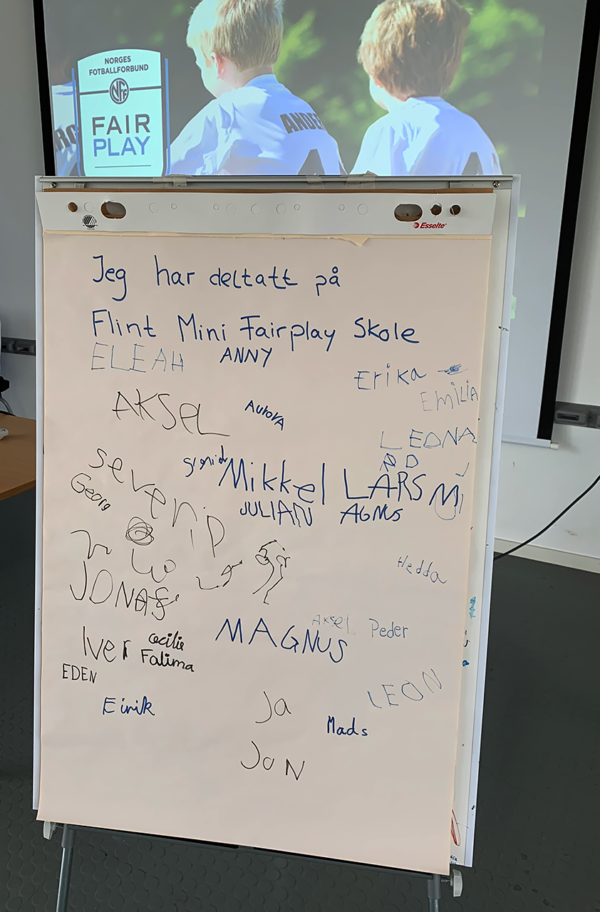 NORGES
FOTBALLFORBUND
NFF
FAIR
PLAY
ANDER
Esselte
Jeg har deltatt på
Flint Mini Fairplay Skole
ELEAH ANNY
Erika
EMILIA
AKSEL AuRoRA
LEONA
RD
severi
Sigrid Mikkel LARS
Georg
JULIAN AGNUS
JONAS
Hedda
AKSEL
MAGNUS Peder
Iver Cecilie
Fatima
EDEN
LEON
Eirik
Ja
Mads
JoN